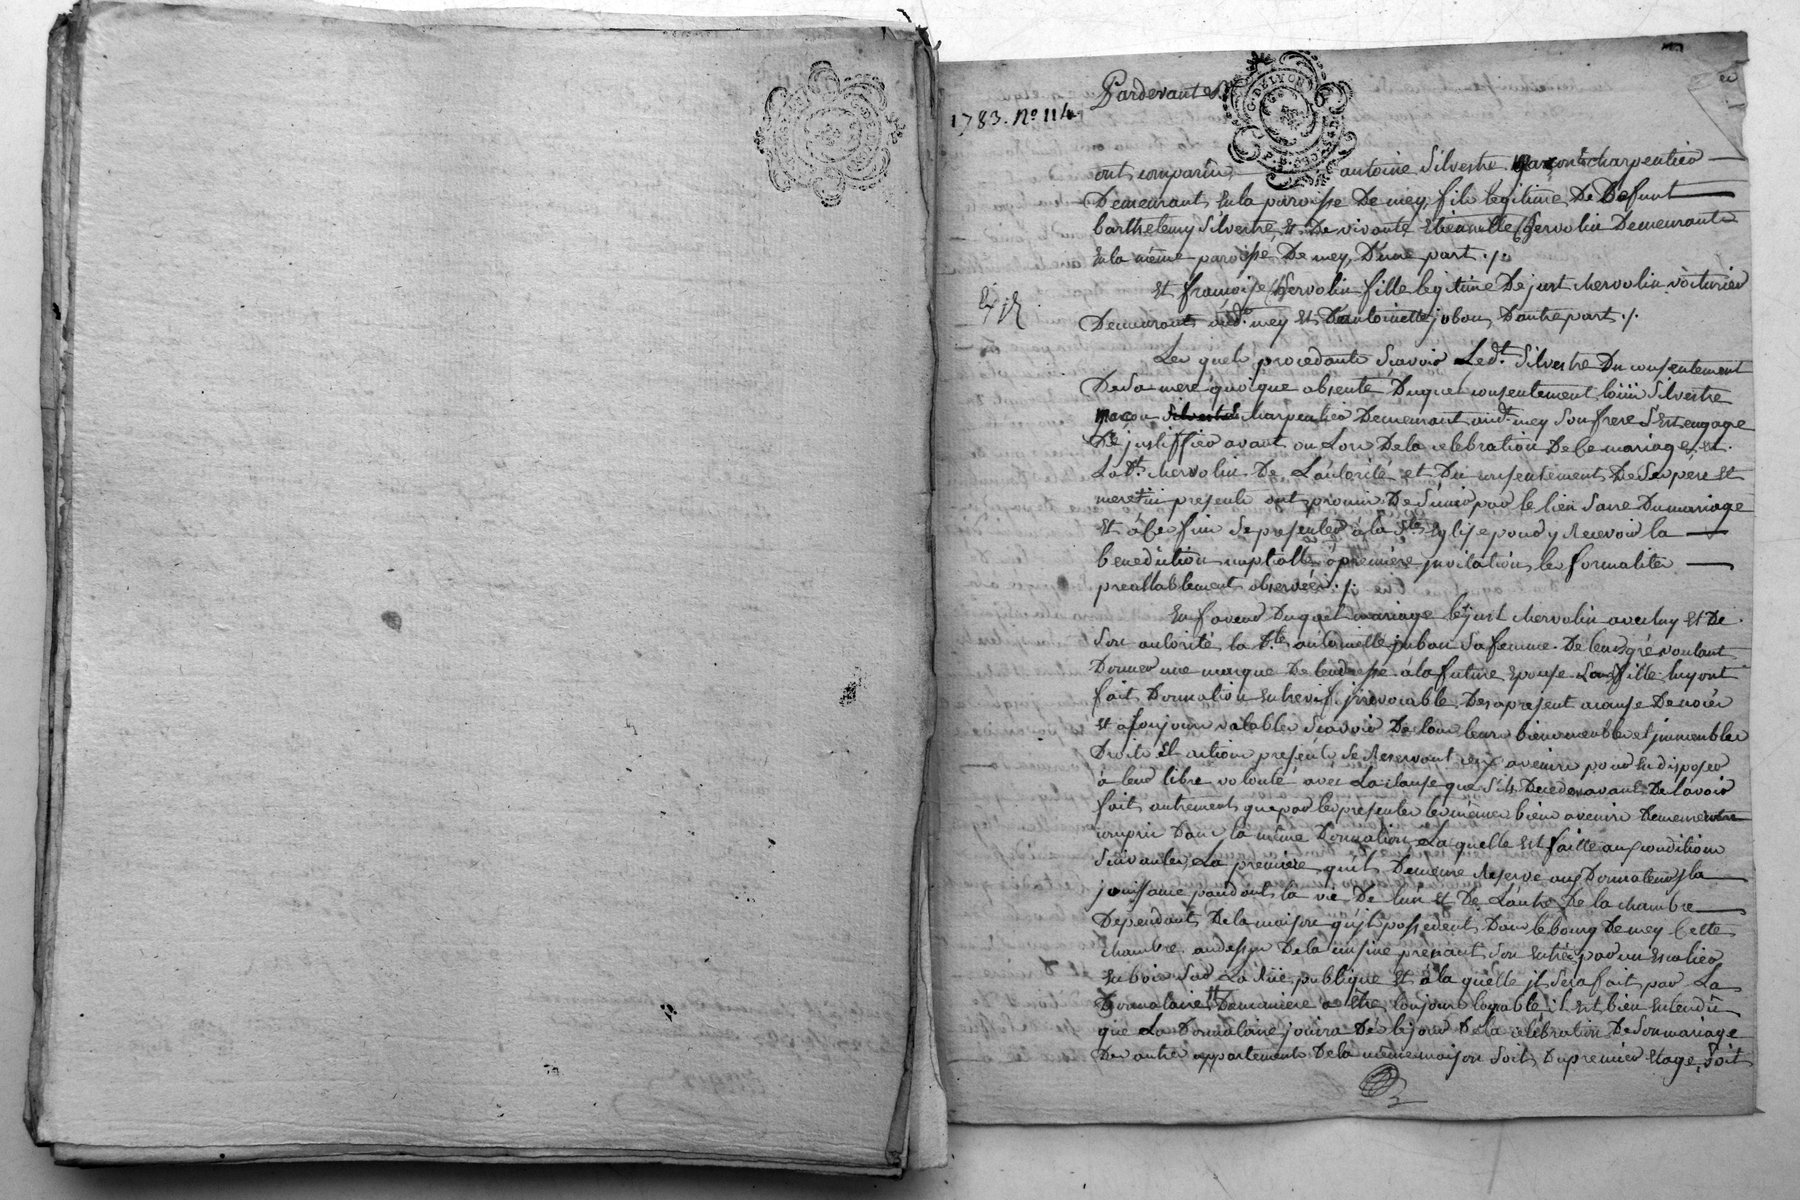 Pardevant
G. DE LYON
1783. N° 114
ont comparûs antoine Silvestre charpentier
Demeurant En la paroisse De mey, fils legitime De Defunt
barthelemy Silvestre, Et De vivante Etiennette Chervolin Demeurants
En la même paroisse De mey, D'une part ./.
Et françoise Chervolin fille legitime De just chervolin voiturier
Demeurants aud.t mey Et D'antoinette jobon, D'autre part ./.
Les quels procedants Scavoir Led.t Silvestre Du consentement
De Sa mere quoique absente, Duquel consentement Silvestre
maçon charpentier Demeurant aud.t mey Son frere S'Est engagé
De justiffier avant ou Lors De la celebration De Ce mariage, Et
Lad.te chervolin De L'autorité et Du consentement De Ses père Et
mere ici presents ont promis De S'unir par le lien Sacré Du mariage
Et à Ce fin Se presenter à la S.te Eglise pour y Recevoir la
benediction nuptialle à premiere jnvitation, les formalités
preallablement observées ./.
En faveur Duquel mariage le just chervolin avec luy Et De
Son autorité, la d.te antoinette jobon Sa femme De leur gré voulant
Donner une marque De tendresse à la future Epouse Leur fille luy ont
fait Donnation Entrevifs jrrevocable Des apresent acause De noces
Et a toujours valable, Scavoir De tous leurs biens meubles et jmmeubles
Droits Et actions presents Se Reservant ceux avenirs pour En disposer
à leur libre volonté avec La clause que S'ils Decedes avant De L'avoir
fait autrement que par les presentes les mêmes biens avenirs Demeureront
compris Dans la même Donnation, La quelle Est faitte aux conditions
Suivantes, La premiere qu'il Demeure Reservé aux Donnateurs la
jouissance pendant la vie De l'un Et De L'autre De la chambre
Dependant De la maison qu'ils possedent Dans le bourg De mey Cette
chambre au dessus De la cuisine prenant Son Entrée par un Escalier
En bois Sur La Rüe publique Et à la quelle jl Sera fait par La
Donnataire De maniere a Etre toujours logeable, il Est bien Entendû
que La Donnataire jouira Dès le jour De la celebration De Son mariage
Des autres appartements De la même maison Soit Du premier Etage, Soit